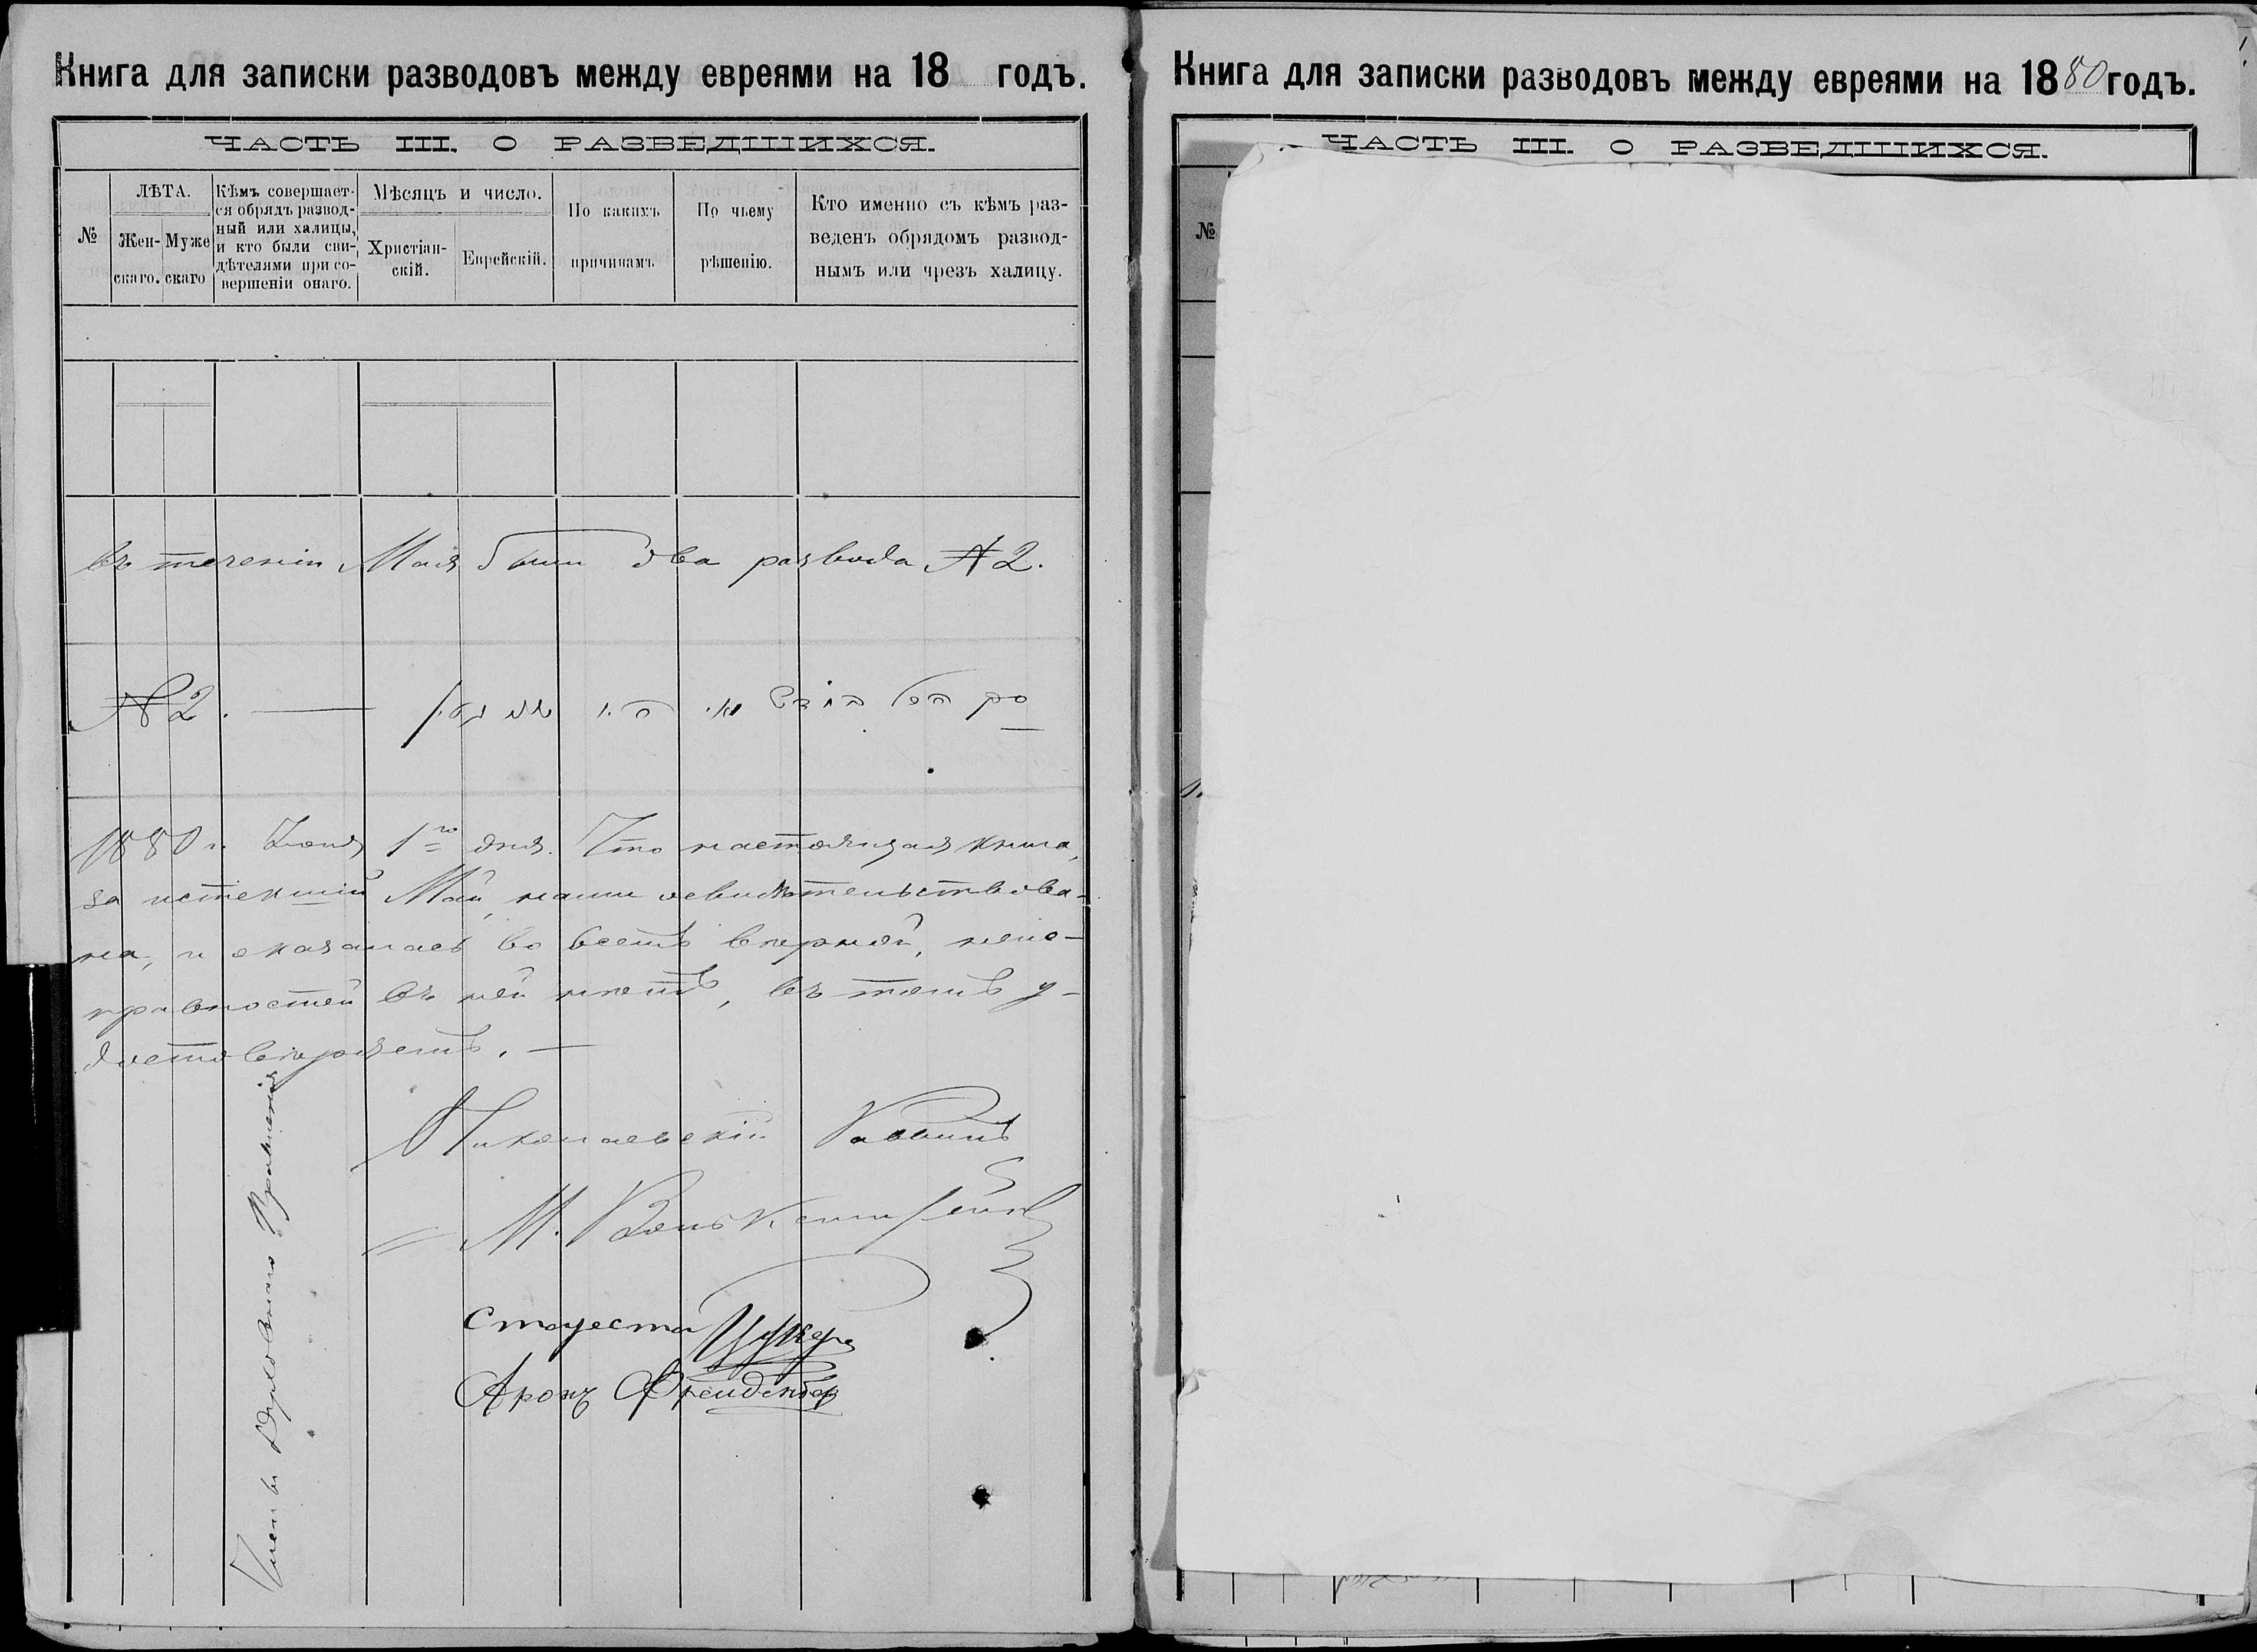 Книга для записки разводовъ между евреями на 18 годъ.
ЧАСТЬ III. О РАЗВЕДШИХСЯ.
№
ЛѢТА.
Жен-
скаго.
Муже
скаго
Кѣмъ совершает-
ся обрядъ развод-
ный или халицы,
и кто были сви-
дѣтелями при со-
вершеніи онаго.
Мѣсяцъ и число.
Христіан-
скій.
Еврейскій.
По какимъ
причинамъ
По чьему
рѣшенію.
Кто именно съ кѣмъ раз-
веденъ обрядомъ развод-
нымъ или чрезъ халицу.
въ теченіи Мая были два развода № 2.
№ 2. —
1880 г. Іюня 1го дня. Что настоящая книга,
за истекшій Май, нами освидѣтельствова-
на, и оказалась во всемъ вѣрной, неис-
правностей въ ней нѣтъ, въ томъ у-
достовѣряемъ. —
Николаевскій Раввинъ
М.
Староста Цукеръ
Аронъ
Членъ Духовнаго Правленія
Книга для записки разводовъ между евреями на 1880 годъ.
ЧАСТЬ III. О РАЗВЕДШИХСЯ.
№